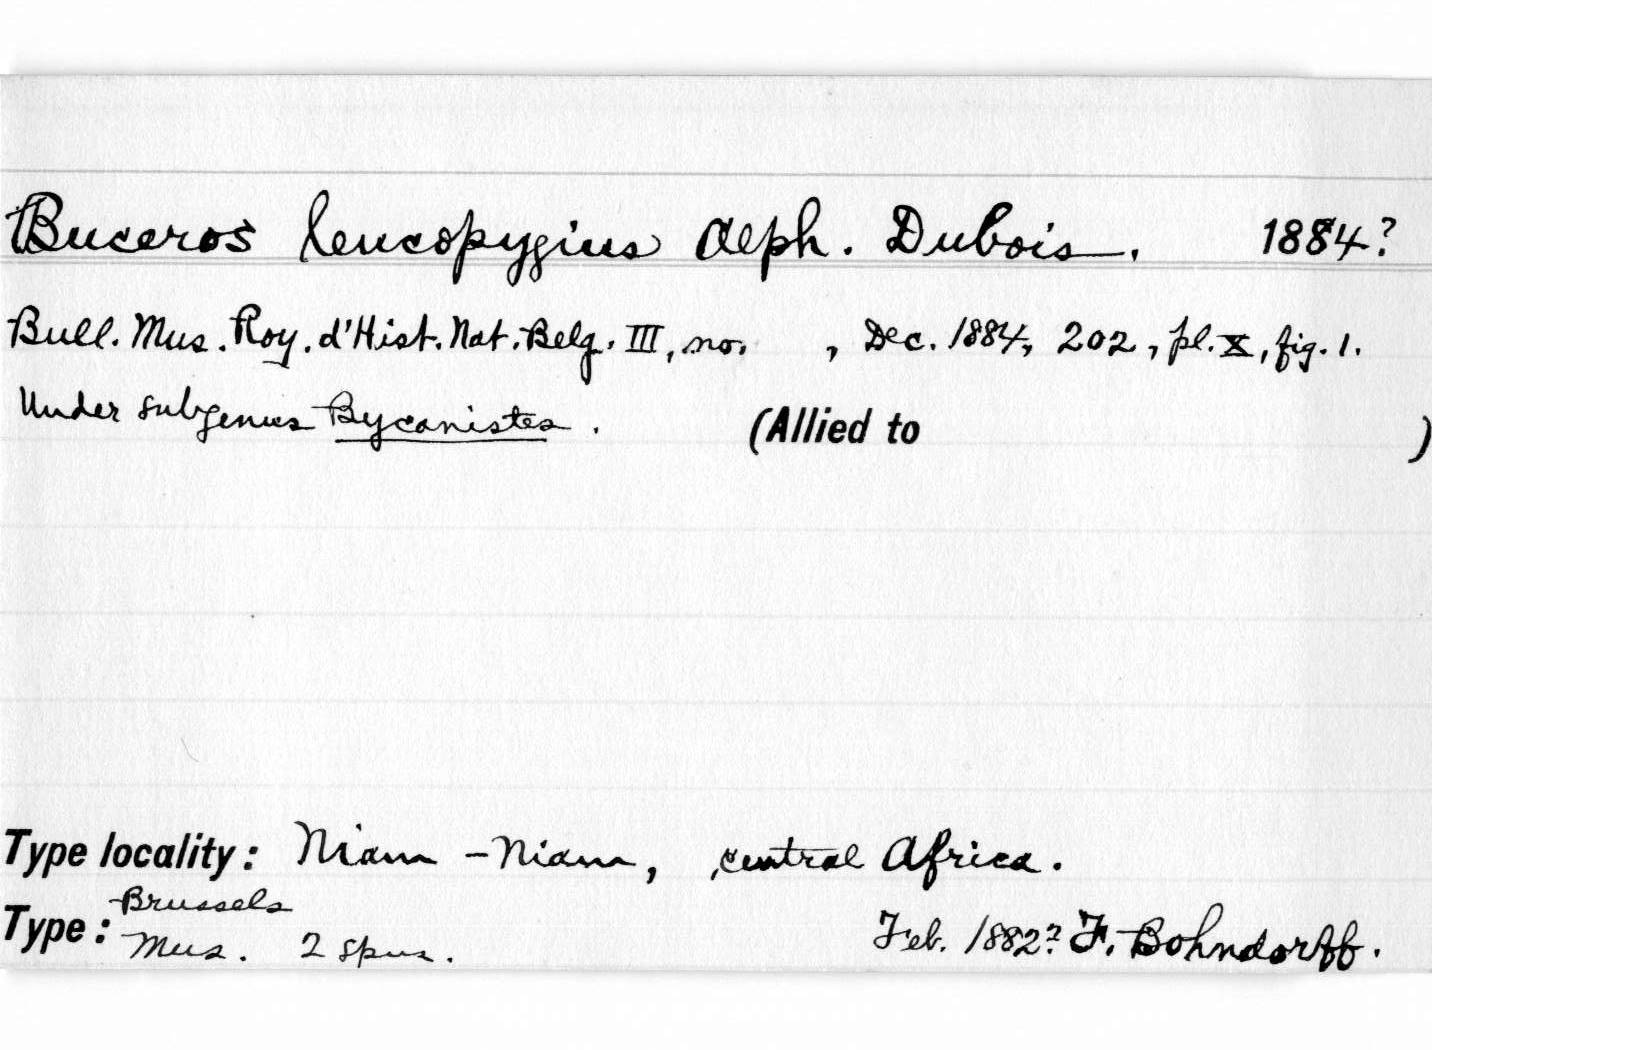 Buceros leucopygius Alph. Dubois. 1884?
Bull. Mus. Roy. d'Hist. Nat. Belg. III, no. , Dec. 1884, 202, pl. X, fig. 1.
Under subgenus Bycanistes. (Allied to )
Type locality: Niam-Niam, central Africa.
Type: Brussels Mus. 2 spms. Feb. 1882? F. Bohndorff.